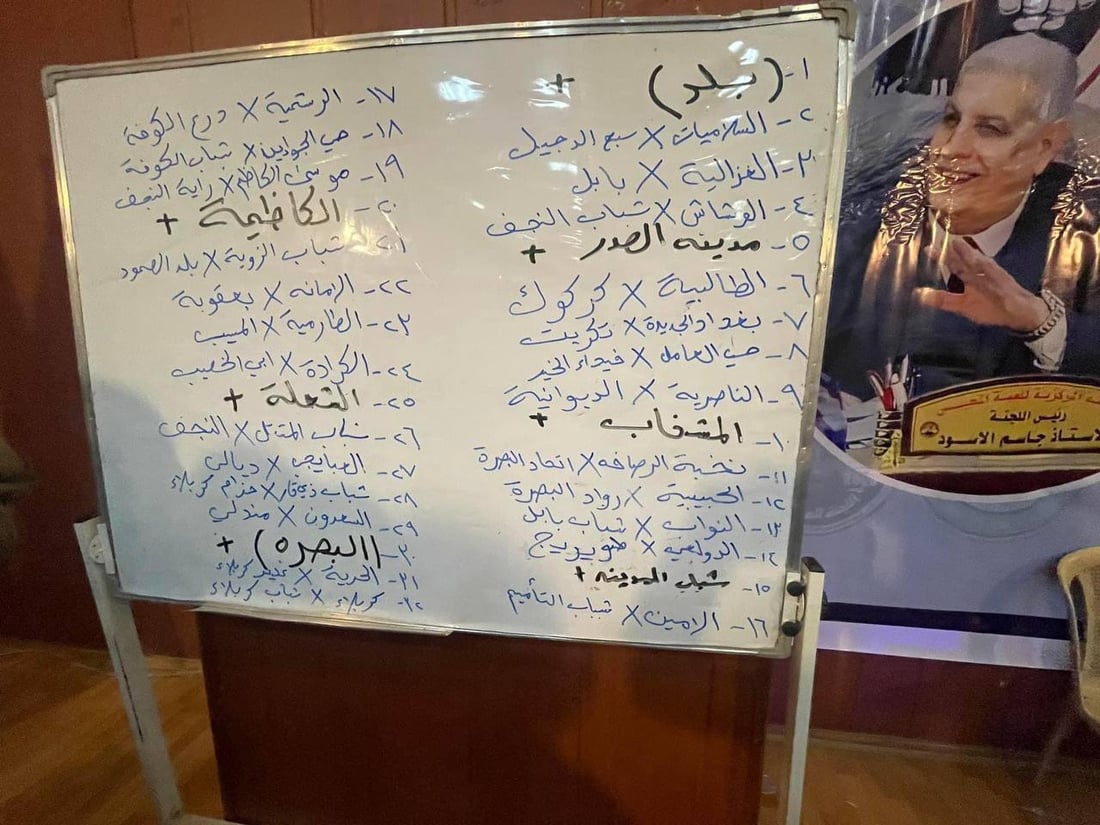 ١- (بلد) +
٢- السلاميات X سبع الدجيل
٣- الغزالية X بابل
٤- الوشاش X شباب النجف
٥- مدينه الصدر +
٦- الطالبية X كركوك
٧- بغداد الجديدة X تكريت
٨- حي العامل X فيحاء الخير
٩- الناصرية X الديوانية
١٠- المشخاب +
١١- نخبة الرصافه X اتحاد البصرة
١٢- الحبيبية X رواد البصرة
١٣- النواب X شباب بابل
١٤- الدولعي X طويريج
١٥- شباب المدينه +
١٦- الامين X شباب التأميم
١٧- الرستمية X درع الكوفة
١٨- حي الجوادين X شباب الكوفة
١٩- موسى الكاظم X راية النجف
٢٠- الكاظمية +
٢١- شباب الزوية X بلد الصمود
٢٢- الرمانه X بعقوبة
٢٣- الطارمية X المسيب
٢٤- الكرادة X ابي الخصيب
٢٥- الشعلة +
٢٦- X النجف
٢٧- العبايجي X ديالى
٢٨- شباب ذي قار X حزام كربلاء
٢٩- السعدون X مندلي
٣٠- (البصره) +
٣١- الحرية X غدير كربلاء
٣٢- كربلاء X شباب كربلاء
رئيس اللجنة
الاستاذ جاسم الاسود